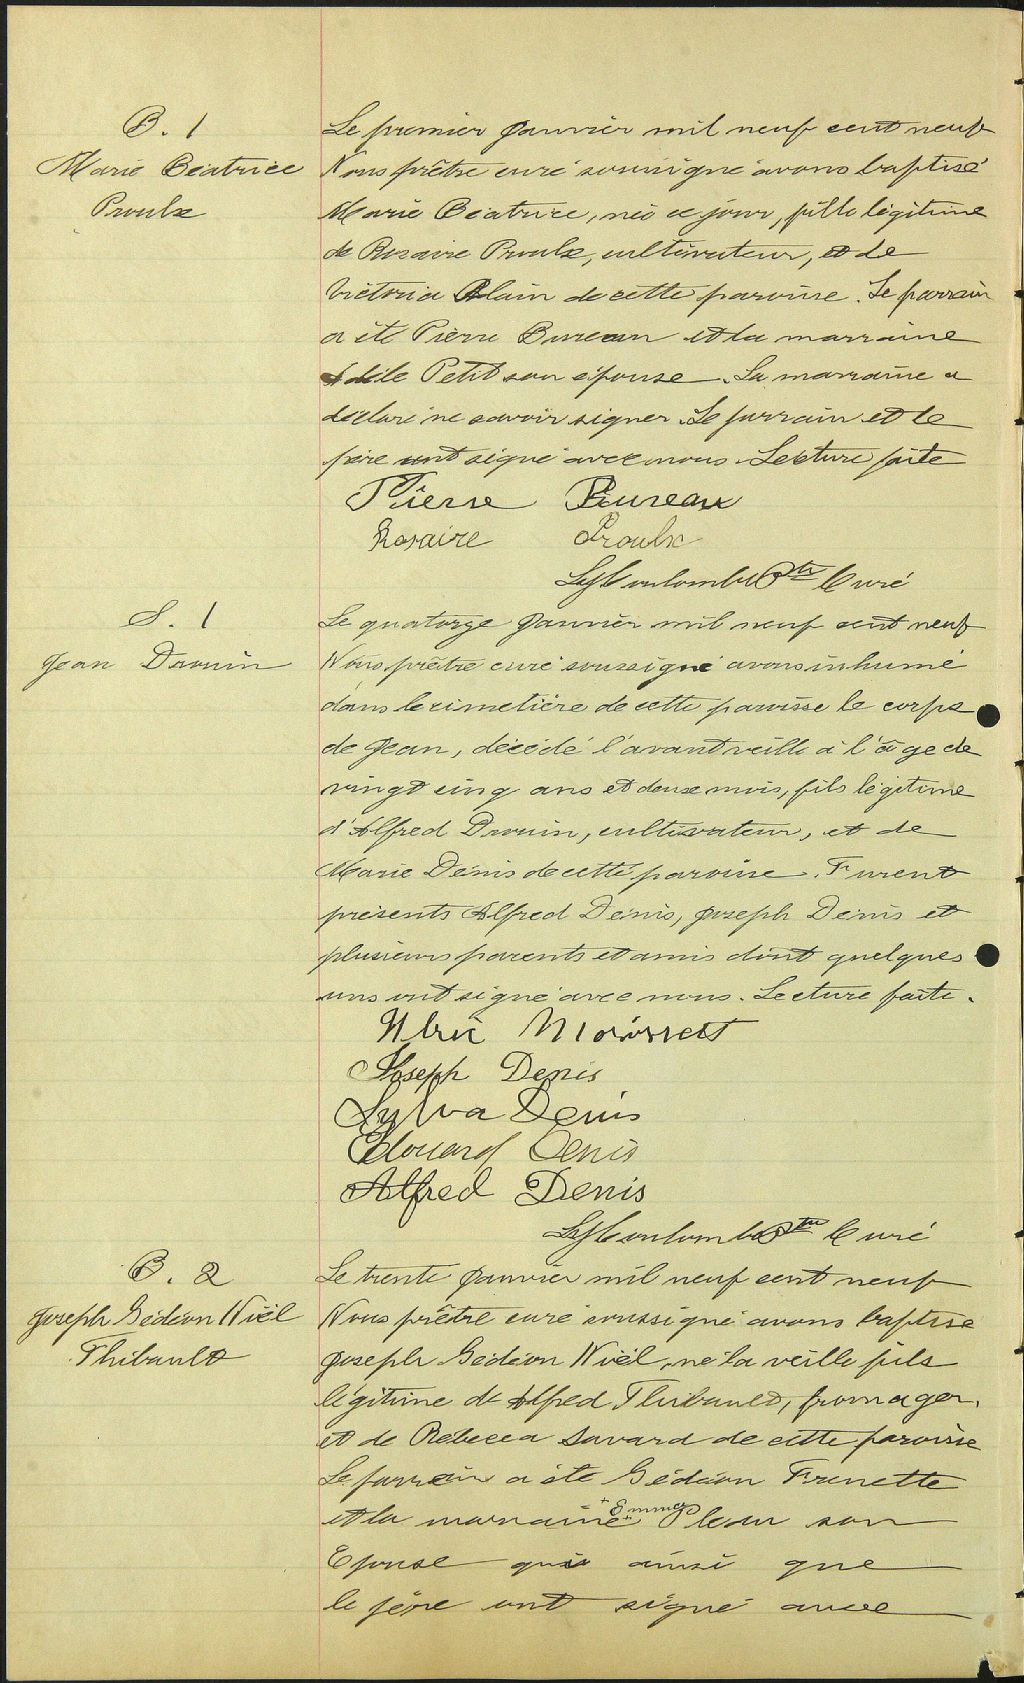 B. 1
Marie Béatrice
Proulx
Le premier janvier mil neuf cent neuf
Nous prêtre curé soussigné avons baptisé
Marie Béatrice, née ce jour, fille légitime
de Rosaire Proulx, cultivateur, et de
Victoria Blain de cette paroisse. Le parrain
a été Pierre Bureau et la marraine
Adèle Petit son épouse. La marraine a
déclaré ne savoir signer. Le parrain et le
père ont signé avec nous. Lecture faite
Pierre Bureau
Rosaire Proulx
Coulombe Ptre Curé
S. 1
Jean Drouin
Le quatorze janvier mil neuf cent neuf
Nous prêtre curé soussigné avons inhumé
dans le cimetière de cette paroisse le corps
de Jean, décédé l'avant veille à l'âge de
vingt cinq ans et deux mois, fils légitime
d'Alfred Drouin, cultivateur, et de
Marie Denis de cette paroisse. Furent
présents Alfred Denis, Joseph Denis et
plusieurs parents et amis dont quelques
uns ont signé avec nous. Lecture faite.
Ulric Morissett
Joseph Denis
Sylva Denis
Edouard Denis
Alfred Denis
Coulombe Ptre Curé
B. 2
Joseph Gédéon Niél
Thibault
Le trente janvier mil neuf cent neuf
Nous prêtre curé soussigné avons baptisé
Joseph Gédéon Niél, né la veille fils
légitime de Alfred Thibault, fromager,
et de Rébecca Savard de cette paroisse
Le parrain a été Gédéon Frenette
et la marraine + Emma son
Epouse qui ainsi que
le père ont signé avec